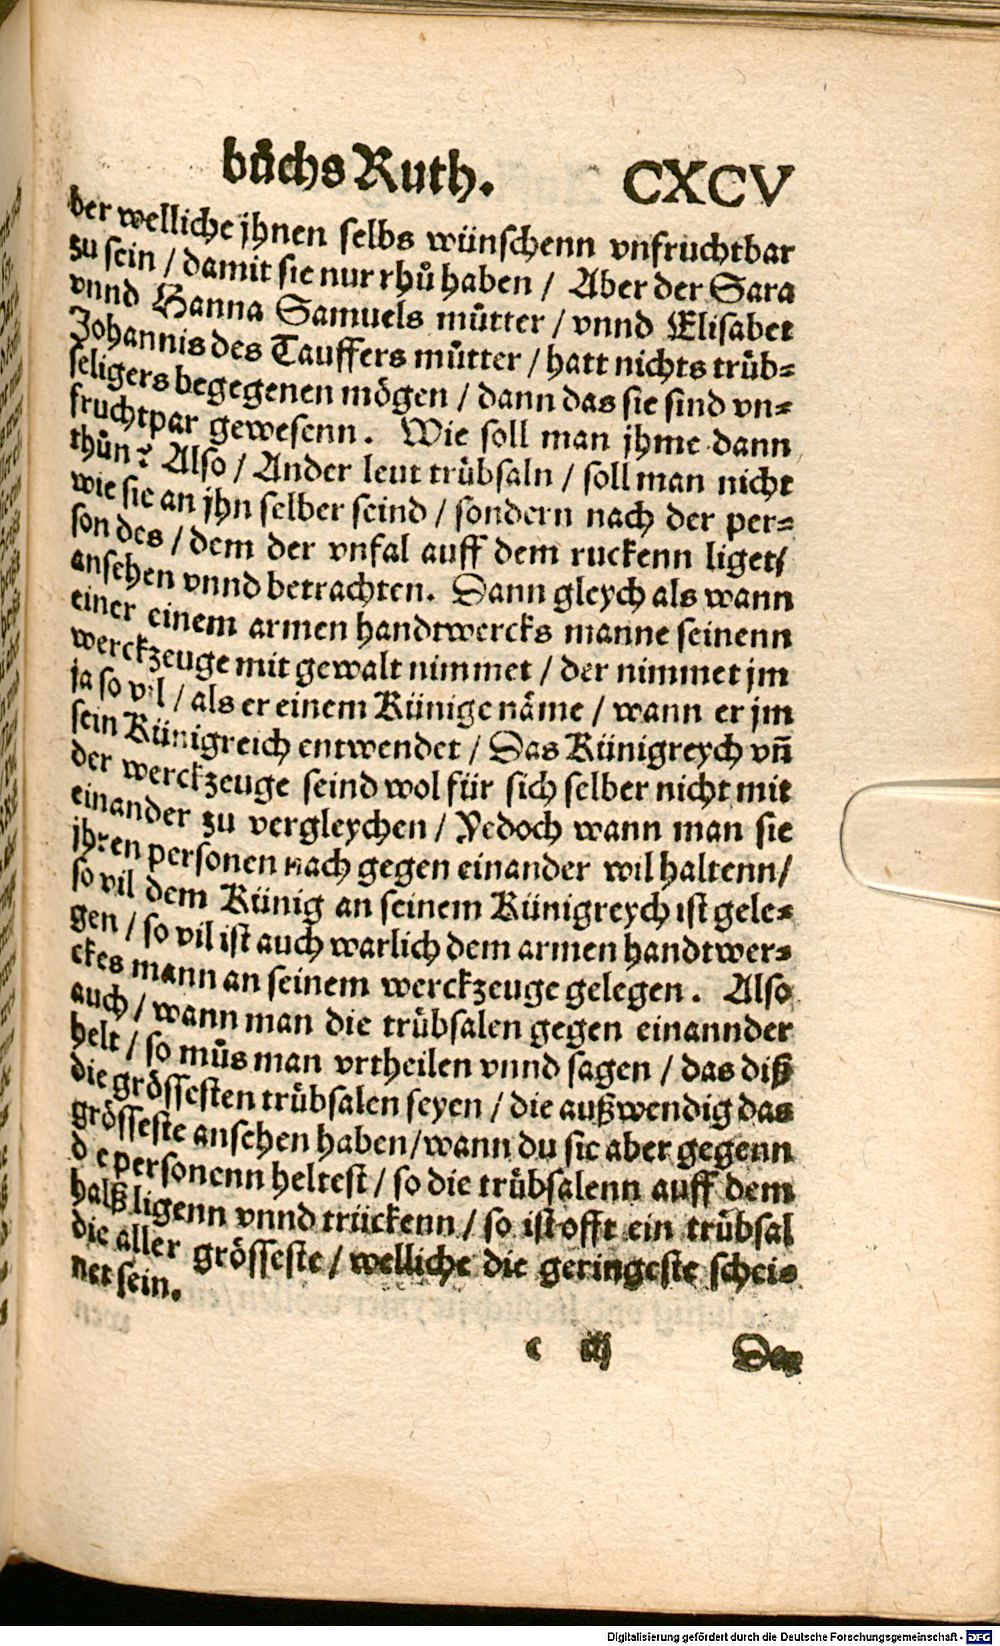 bůchs Ruth. CXCV
ber welliche jhnen selbs wünschenn vnfruchtbar
zu sein / damit sie nur rhů haben / Aber der Sara
vnnd Hanna Samuels můtter / vnnd Elisabet
Johannis des Tauffers můtter / hatt nichts trůb⸗
seligers begegenen mögen / dann das sie sind vn⸗
fruchtpar gewesenn. Wie soll man jhme dann
thůn? Also / Ander leut trůbsaln / soll man nicht
wie sie an jhn selber seind / sondern nach der per⸗
son des / dem der vnfal auff dem ruckenn liget/
ansehen vnnd betrachten. Dann gleych als wann
einer einem armen handtwercks manne seinenn
werckzeuge mit gewalt nimmet / der nimmet jm
ja so vil / als er einem Künige näme / wann er jm
sein Künigreich entwendet / Das Künigreych vn̄
der werckzeuge seind wol für sich selber nicht mit
einander zu vergleychen / Yedoch wann man sie
jhren personen nach gegen einander wil haltenn/
so vil dem Künig an seinem Künigreych ist gele⸗
gen / so vil ist auch warlich dem armen handtwer⸗
ckes mann an seinem werckzeuge gelegen. Also
auch / wann man die trůbsalen gegen einannder
helt / so můs man vrtheilen vnnd sagen / das diß
die grössesten trůbsalen seyen / die außwendig das
grösseste ansehen haben/wann du sie aber gegenn
d e personenn heltest / so die trůbsalenn auff dem
halß ligenn vnnd trückenn / so ist offt ein trůbsal
die aller grösseste / welliche die geringeste schei⸗
net sein.
c iij Der
Digitalisierung gefördert durch die Deutsche Forschungsgemeinschaft - DFG